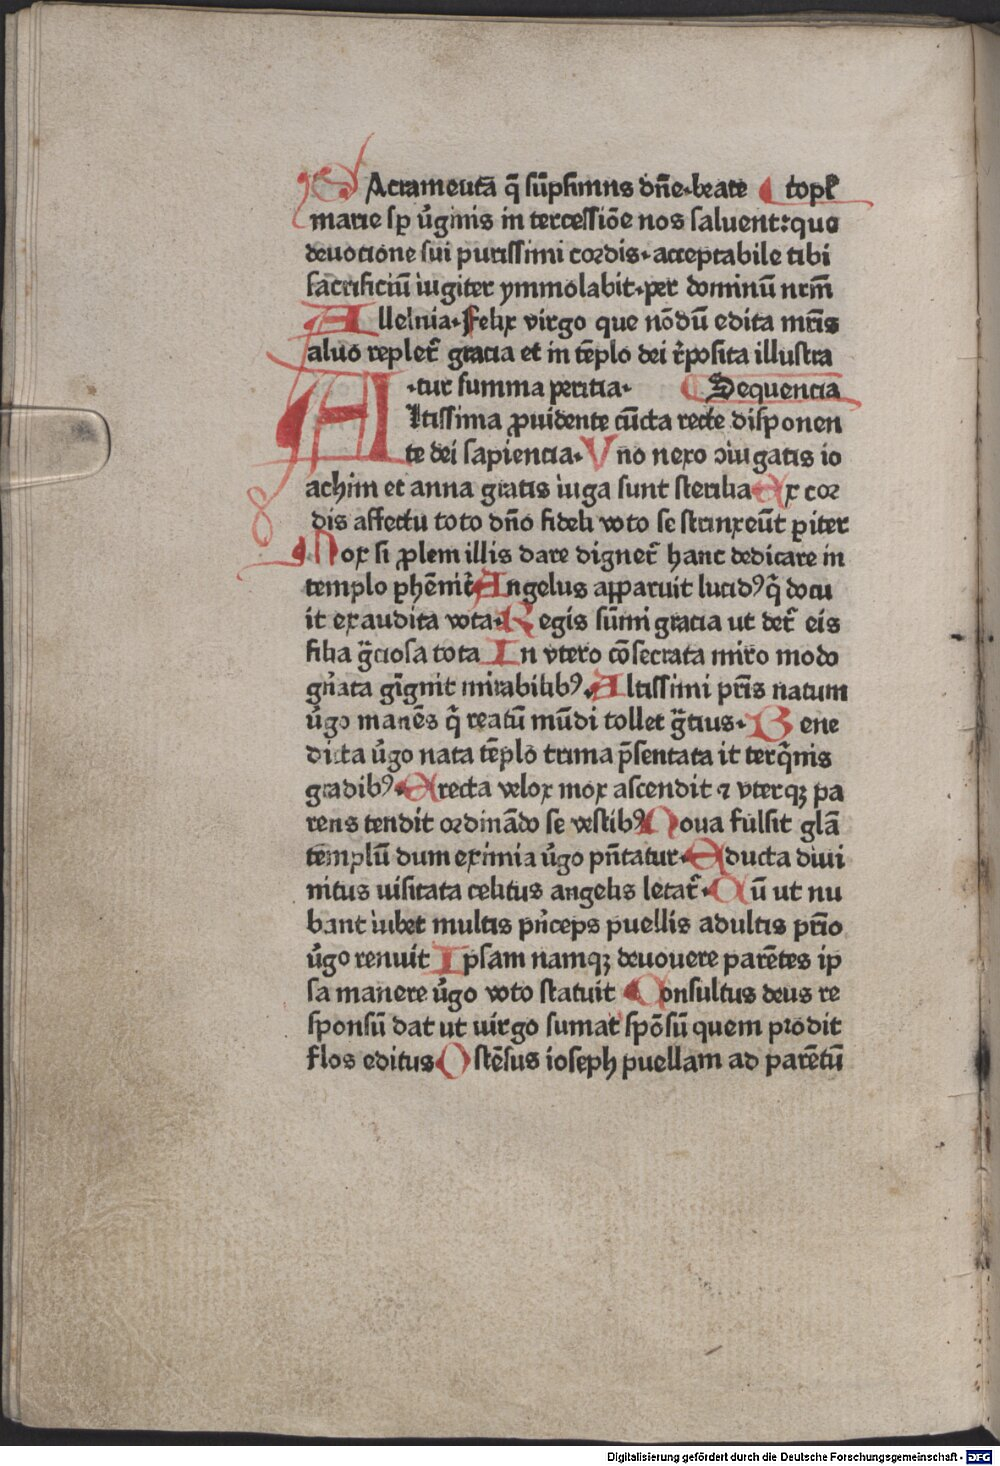 SAcramenta q̄ sūpsimus dn̄e·beate ¶ Cōpl̄
marie sp̄ ŭginis in tercessiōe nos saluent:que
deuotione sui purissimi cordis·acceptabile tibi
sacrificiū iugiter ymmolabit·per dominū nr̄m
Alleluia·Felix virgo que nōdū edita mr̄is
aluo repler̄ gracia et in tēplo dei r̄posita illustra
·tur summa peritia· Sequencia
ALtissima ꝓuidente cūcta recte disponen
te dei sapiencia·Vno nexo ↄiugatis io
achim et anna gratis iuga sunt sterilia Ex cor
dis affectu toto dn̄o fideli voto se strinxeūt ꝑiter
Uox si ꝓlem illis dare digner̄ hanc dedicare in
templo ꝑhēnit̄ Angelus apparuit lucidꝰ q̄ docu
it exaudita vota·Regis sūmi gracia ut der̄ eis
filia gͣciosa tota In vtero cōsecrata miro modo
gn̄ata gīgnit mirabilibꝰ·Altissimi pr̄is natum
ŭgo manēs q̄ reatū mūdi tollet gͣtius·Bene
dicta ŭgo nata tēplo trima p̄sentata it terq̄nis
gradibꝰ·Erecta velox mox ascendit ⁊ vterqꝫ pa
rens tendit ordināдo se vestibꝰ Noua fulsit glā
templū dum eximia ŭgo pn̄tatur·Educta diui
nitus uisitata celitus angelis letar̄·Cū ut nu
bant iubet multis pn̄ceps puellis adultis pr̄io
ŭgo renuit Ipsam namqꝫ deuouere parētes ip
sa manere ŭgo voto statuit Consultus deus re
sponsū dat ut uirgo sumat spōsū quem prodit
flos editus Ostēsus ioseph puellam ad parētū
Digitalisierung gefördert durch die Deutsche Forschungsgemeinschaft - DFG